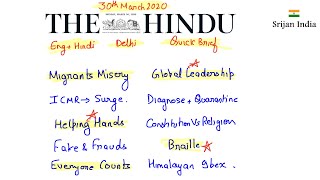 30th March 2020
THE HINDU
Srijan India
Eng + Hindi Delhi Quick Brief
Migrants Misery Global Leadership
ICMR → Surge. Diagnose + Quarantine
Helping Hands Constitution Vs Religion
Fake & Frauds Braille
Everyone Counts Himalayan Ibex.